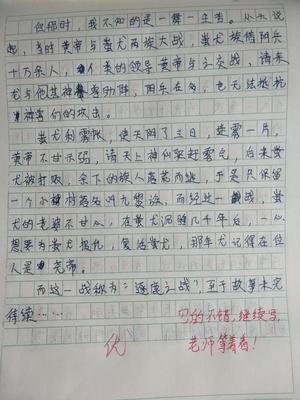 但那时,我不知的是一舞一主者。从水说
起,当时黄帝与蚩尤两族大战,蚩尤族借阴兵
十万余人,个美的领导黄帝与之交战,请来
龙与他其神兽助阵,阴车在多,也无法抵抗
神兽们的攻击。
蚩尤利雾帐,使天阴了三日,迷雾一片,
黄帝不甘示弱,请天上神仙驱赶雾气,后来蚩
尤被打败,余下的族人离苗两疆,于是只保留
一个小村落名叫九黎族。而经过一战,蚩
尤的老婆不甘心,在蚩尤沉睡几千年后,一心
想要为蚩尤报仇,复活蚩尤,那车尤记得在位
人是尧帝。
而这一战称为:“逐鹿之战”,至于故事未完
待续……
优
写的不错,继续写,
老师等着看!